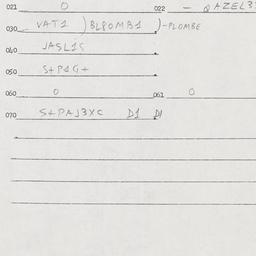 021 0 022 - QAZEL3
030 VAT1 )BLPOMB1 )-PLOMBE
040 JASL1S
050 S+P1G+
060 0 061 0
070 S+PAJ3XC D1 D1